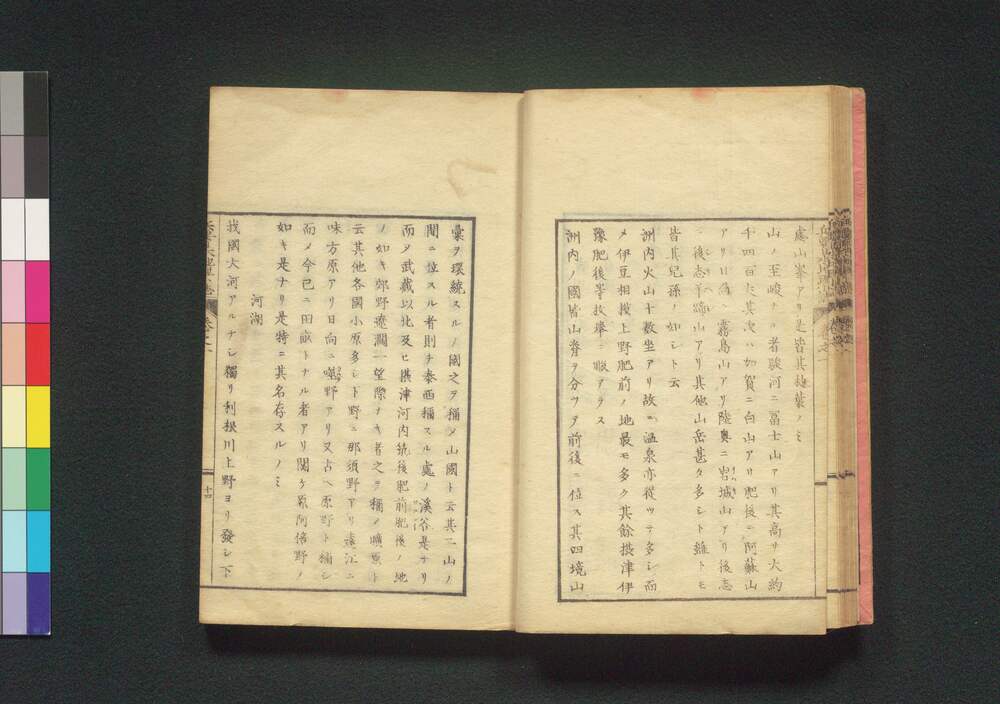 處山峯アリ是皆其枝葉ノミ
山ノ至峻ナル者駿河ニ冨士山アリ其高サ大約
千四百丈其次ハ加賀ニ白山アリ肥後ニ阿蘇山
アリ日向ニ霧島山アリ陸奥ニ岩城山アリ後志
ニ後志羊蹄山アリ其他山岳甚タ多シト雖トモ
皆其兒孫ノ如シト云
洲内火山十數坐アリ故ニ温泉亦從ツテ多シ而
メ伊豆相摸上野肥前ノ地最モ多ク其餘摂津伊
豫肥後等枚擧ニ暇アラス
洲内ノ國皆山脊ヲ分ツテ前後ニ位ス其四境山
彙ヲ環繞スルノ國之ヲ稱メ山國ト云其二山ノ
間ニ位スル者則チ泰西稱スル處ノ溪谷是ナリ
而メ武藏以北及ヒ摂津河内筑後肥前肥後ノ地
ノ如キ郊野遼濶一望際ナキ者之ヲ稱メ曠原ト
云其他各國小原多シト野ニ那須野アリ遠江ニ
味方原アリ日向ニ野アリ又古ヘ原野ト稱シ
而メ今已ニ田畝トナル者アリ関ケ原阿倍野ノ
如キ是ナリ是特ニ其名存スルノミ
河湖
我國大河アルナシ獨リ利根川上野ヨリ發シ下
十四